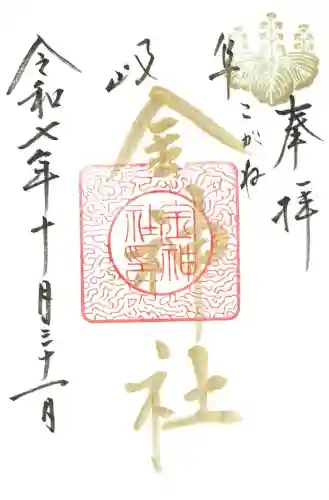 奉拝
岐阜
こがね
金神社
金神
社印
令和七年十月三十一日